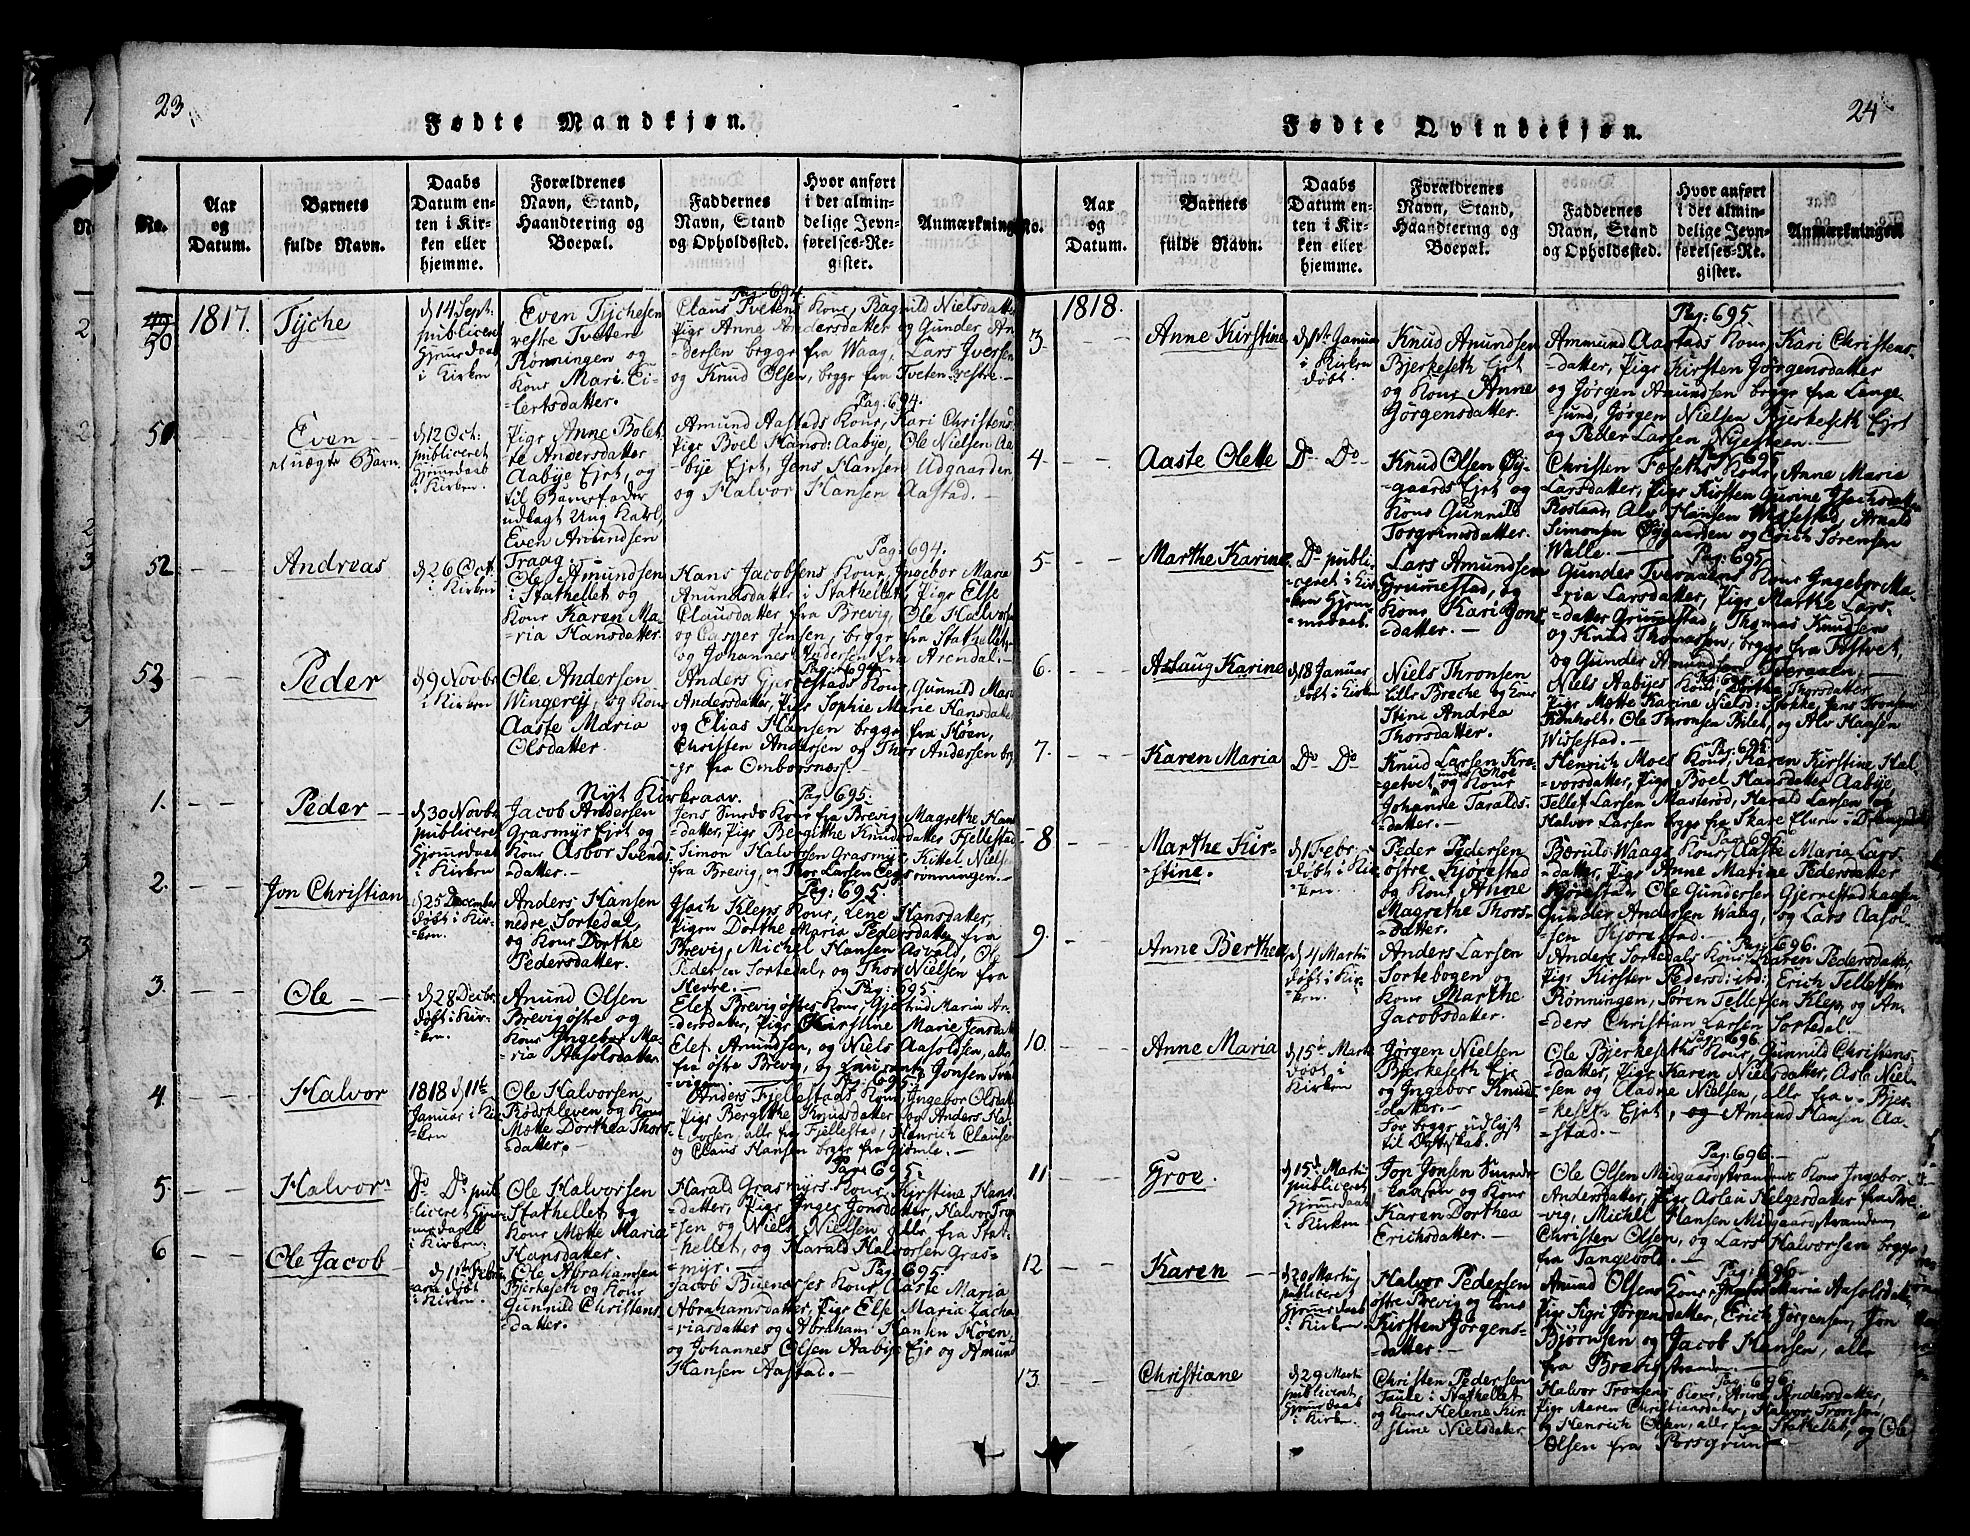 23
Fødte Mandkjøn.
No.
Aar og Datum.
Barnets fulde Navn.
Daabs Datum enten i Kirken eller hjemme.
Forældrenes Navn, Stand, Haandtering og Boepæl.
Faddernes Navn, Stand og Opholdssted.
Hvor anført i det almindelige Jevnførelses-Register.
Anmærkning
50
1817.
Tyche
d 14 Sept.
publiceret
Hjemedaab
i Kirken
Even Tychesen
vestre Tveten
Rønningen og
Kone Mari Ei-
lertsdatter.
Pag: 694
Claus Tvetens Kone, Ragnild Nielsdatter
Pige Anne Andersdatter og Gunder An-
dersen begge fra Waag, Lars Iversen
og Knud Olsen, begge fra Tveten vestre.
51
Even
et uægte Barn.
d 12 Oct:
publiceret
Hjemedaab
i Kirken.
Pige Anne Bolet-
te Andersdatter
Aabye Ejet, og
til Barnefader
udlagt Ung Karl,
Even Amundsen
Traag.
Pag: 694.
Amund Aastads Kone, Kari Christens:
Pige Boel Hansd: Aabye, Ole Nielsen Aa-
bye Ejet, Jens Hansen Udgaarden
og Halvor Hansen Aastad.
52
Andreas
d 26 Oct.
i Kirken
Ole Amundsen
i Stathellet og
Kone Karen Ma-
ria Hansdatter.
Pag: 694.
Hans Jacobsens Kone, Ingebor Marie
Amundsdatter i Stathellet, Pige Else
Clausdatter fra Brevig, Ole Halvors-
og Casper Jensen, begge fra Stathellet,
og Johannes Pedersen fra Arendal.
53
Peder
d 9 Novbr
i Kirken
Ole Andersen
Wingerej, og Kone
Aaste Maria
Olsdatter.
Pag: 694
Anders Gjernestads Kone, Gunnild Marie
Andersdatter, Pige Sophie Marie Hansdatter
og Elias Hansen begge fra Høen,
Christen Andersen og Thor Andersen beg-
ge fra Omborsnes.
Nyt Kirkeaar.
1.
Peder
d 30 Novbr
publiceret
Hjemedaab
i Kirken
Jacob Andersen
Grasmyr Ejet og
Kone Asbor Svends-
datter.
Pag: 695.
Jens Sunds Kone fra Brevig, Magrethe Han-
datter, Pige Bergithe Knudsdatter Fjellestad
Simon Halvorsen Grasmyr, Kittel Niels-
fra Brevig, og Thor Larsen Eegsrønningen.
2.
Jon Christian
d 25 December
døbt i Kir-
ken.
Anders Hansen
nedre Sortedal,
og Kone Dorthe
Pedersdatter.
Pag: 695.
Isach Kleps Kone, Lene Hansdatter,
Pigen Dorthe Maria Pedersdatter fra
Brevig, Michel Hansen Asvald, Ole
Pedersen Sortedal, og Thor Nielsen fra
Herre.
3.
Ole
d 28 Decbr
døbt i Kir-
ken.
Amund Olsen
Brevig østre og
Kone Ingebor Ma-
ria Aasoldsdatter
Pag: 695.
Elef Brevig østres Kone, Gjertrud Maria An-
dersdatter, Pige Kirstine Marie Jensdatter
Elef Amundsen, og Niels Aasoldsen, alle
fra østre Brevig, og Laurants Jonsen
4.
Halvor
1818 d 11te
Januar i Kir-
ken
Ole Halvorsen
Rødskleven og Kone
Mette Dorthea Thors-
datter.
Pag: 695
Anders Fjellestads Kone Ingebor Olsdatter
Pige Bergithe Knudsdatter og Anders Hal-
vorsen, alle fra Fjellestad, Henrich Clausen
og Claus Hansen begge fra Gjømle.
5.
Halvor
Do Do pub
liceret Hjem
medaab
i Kirken
Ole Halvorsen
Stathellet og
Kone Mette Maria
Hansdatter.
Pag: 695.
Harald Grasmyrs Kone, Kirstine Hans-
datter, Pige Inger Jonsdatter, Halvor
sen og Niels Nielsen, alle fra Stat-
hellet, og Harald Halvorsen Gras-
myr.
6
Ole Jacob
d 1ste Febru
arii døbt
i Kirken.
Ole Abrahamsen
Bjerkeseth og Kone
Gunnild Christens-
datter.
Pag: 695.
Jacob Kone, Aaste Maria
Abrahamsdatter, Pige Else Maria Zacha-
riasdatter og Abraham Hansen Høen,
og Johannes Olsen Aabye Ejet og Amund
Hansen Aastad.
24
Fødte Qvindekjøn.
No.
Aar og Datum.
Barnets fulde Navn.
Daabs Datum enten i Kirken eller hjemme.
Forældrenes Navn, Stand, Haandtering og Boepæl.
Faddernes Navn, Stand og Opholdssted.
Hvor anført i det almindelige Jevnførelses-Register.
Anmærkninger
1818.
3
Anne Kirstine
d 1ste Januar
i Kirken
døbt.
Knud Amundsen
Bjerkeseth Ejet
og Kone Anne
Jørgensdatter.
Pag: 695
Ammund Aastads Kone, Kari Christens-
datter, Pige Kirsten Jørgensdatter
og Jørgen Amundsen begge fra Lange-
sund, Jørgen Nielsen Bjerkeseth Ejet
og Peder Larsen Nyesteen.
4
Aaste Olette
Do Do
Knud Olsen Øy-
gaards Ejet og
Kone Gunnild
Torgrimsdatter.
Pag: 695
Christen Foseths Kone, Anne Maria
Larsdatter, Pige Kirsten Gurine Isachsdatter
Roslaar, Ole Hansen Wissestad, Arnold
Simonsen Øygaarden og Erich Sørensen
Walle.
5
Marthe Karine
Do publi-
ceret i Kir-
ken Hjem-
medaab.
Lars Amundsen
Grummestad, og
Kone Kari Jons-
datter.
Pag: 695
Gunder Tveraaens Kone Ingebor Ma-
ria Larsdatter, Pige Marthe Lars-
datter Grummestad, Thomas Knudsen
og Knud Thomassen, begge fra Tostvet,
og Gunder Amundsen Tveraaen.
6.
Aslaug Karine
d 18 Januar
døbt i Kirken
Niels Thronsen
Lille Brække og Kone
Stine Andrea
Thorsdatter.
Pag: 695
Niels Aabyes Kone, Dorthe Thorsdatter
Pige Mætte Karine Nielsd: Stokke, Jens Tronsen
Romholt, Ole Thronsen Bilet, og Alv Haasen
Wissestad.
7.
Karen Maria
Do Do
Knud Larsen Kro-
getvet under Moe
og Kone
Johanne Taralds-
datter.
Pag: 695.
Henrich Moes Kone, Karen Kirstine Hal-
vorsdatter, Pige Boel Hansdatter Aabye,
Tellef Larsen Masterød, Harald Larsen og
Halvor Larsen begge fra Skare
8
Marthe Kir-
stine.
d 1 Febr:
døbt i Kir-
ken.
Peder Pedersen
østre Kjørestad
og Kone Anne
Magrethe Thors-
datter.
Pag: 696
Waags Kone, Aaste Maria Lars-
datter, Pige Anne Marine Pedersdatter
Kjørestad, Ole Gundersen Gjernestad
Gunder Andersen Waag, og Lars Aasol-
sen Kjørestad.
9.
Anne Berthea
d 4 Martii
døbt i Kir-
ken.
Anders Larsen
Sortebogen og
Kone Marthe
Jacobsdatter.
Pag: 696.
Anders Sortedals Kone Karen Pedersdatter,
Pige Kirsten Pedersd: ibid: Erich Tellefsen
Rønningen, Søren Tellefsen Klep, og An-
ders Christian Larsen Sortedal.
10.
Anne Maria
d 15de Martii
døbt i
Kirken
Jørgen Nielsen
Bjerkeseth Eje
og Ingebor Knuds-
datter.
For begge udlyst
til Ægteskab.
Pag: 696.
Ole Bjerkeseths Kone, Gunnild Christens-
datter, Pige Karen Nielsdatter, Asle Niel-
sen og Nielsen, alle fra Bjer-
keseth Ejet, og Amund Hansen Aa-
stad.
11
Groe.
d 15de Martii
publiceret
Hjemedaab
i Kirken
Jon Jonsen
og Kone
Karen Dorthea
Erichsdatter.
Pag: 696.
Ole Olsen Midgaardstrandens Kone Ingebor
Andersdatter, Pige Aslou Helgesdatter fra Bre-
vig, Michel Hansen Midgaardstranden,
Christen Olsen, og Lars Halvorsen begge
fra Tangevold.
12
Karen
d 20 Martii
publiceret
Hjemedaab
i Kirken
Halvor Pedersen
østre Brevig og Kone
Kirsten Jørgens-
datter
Pag: 696
Amund Olsens Kone, Ingebor Maria Aasolsdatter,
Pige Sigri Jørgensdatter, Erich Jørgensen, Jon
Bjørnsen og Jacob Hansen, alle
fra Brevigstranden.
13.
Christiane
d 29 Martii
publiceret
Hjemedaab
i Kirken.
Christen Pedersen
Taule i Stathellet
og Kone Helene Kir
stine Nielsdatter
Pag: 696.
Halvor Tronsens Kone, Anne Andersdatter,
Pige Maren Christiansdatter, Halvor Tronsen
og Henrich Olsen, alle fra Stathellet, og Ole
Olsen fra Porsgrund